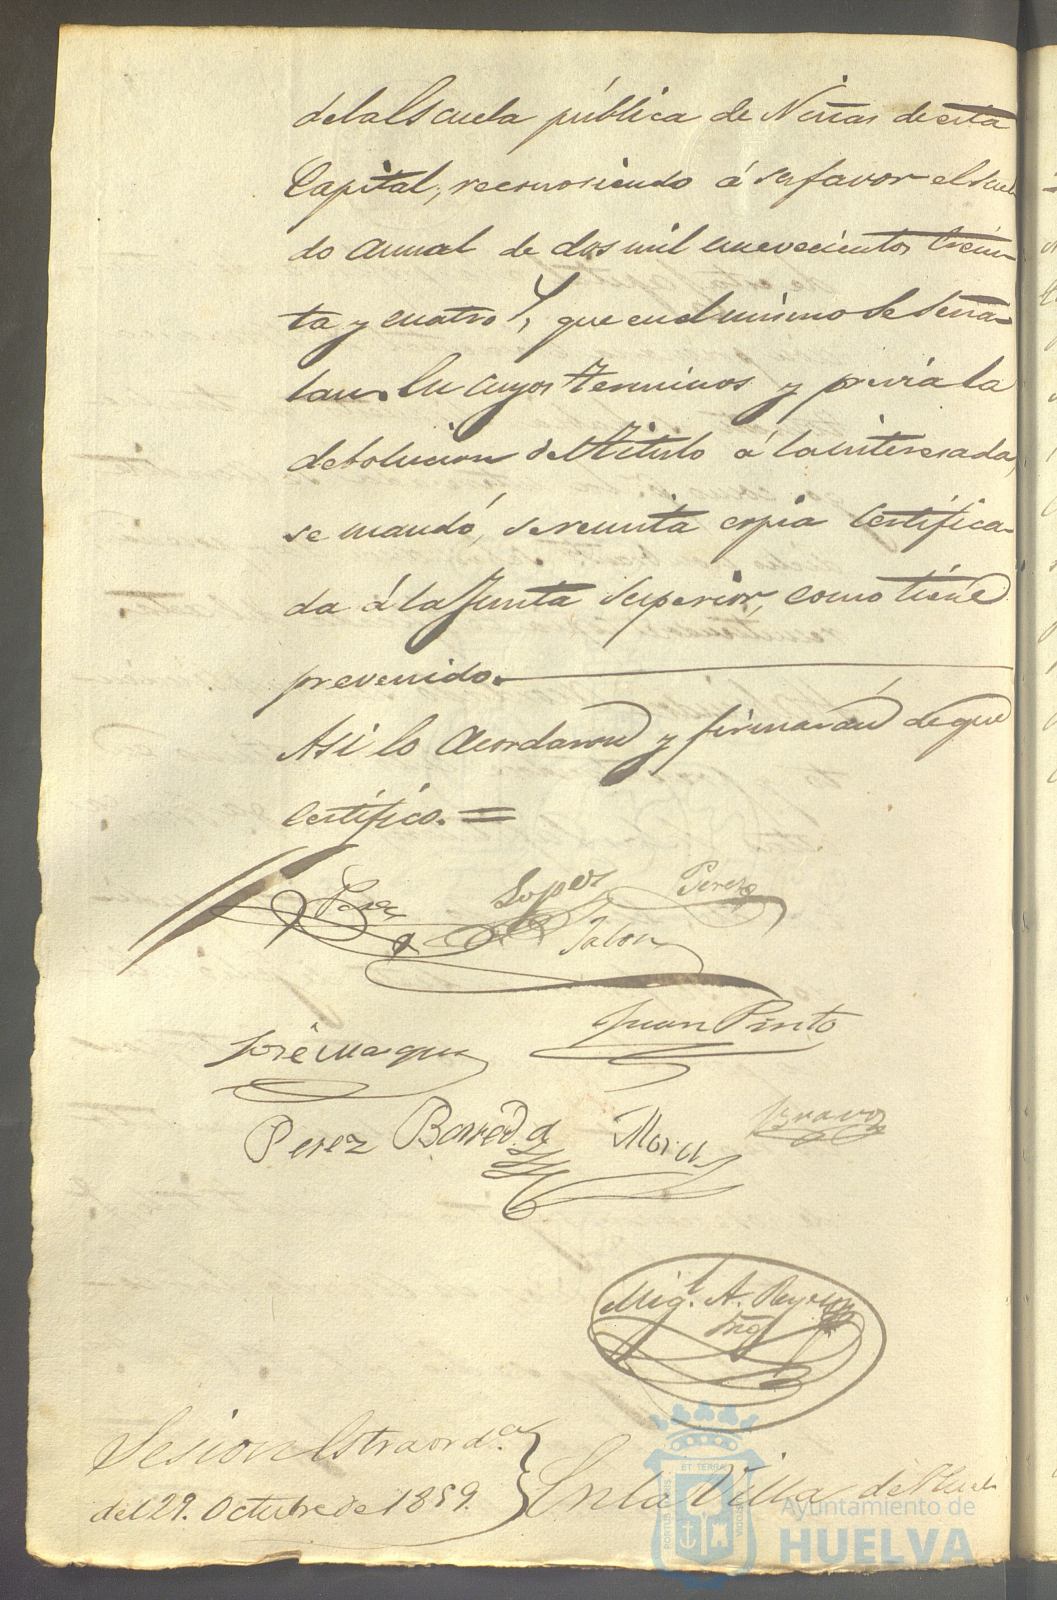 dela Escuela pública de Niñas de esta
Capital, reconosiendo á su favor el suel
do anual de dos mil nuevecientos trein-
ta y cuatro r, que en el mismo se seña-
lan. En cuyos terminos y previa la
debolucion del titulo á la interesada,
se mandó, se remita copia certifica-
da á la Junta Superior, como tiene
prevenido.
Asi lo acordaron y firmarán de que
certifico. =
Lopez Perez
Jalon
Juan Pinto
José Marquez
Perez Barreda Mora Bravo
Mig.l A.
Srio
Sesion Estraord.a
del 29. Octubre de 1859.
En la Villa de Huel
ET TERRAE
Ayuntamiento de
HUELVA